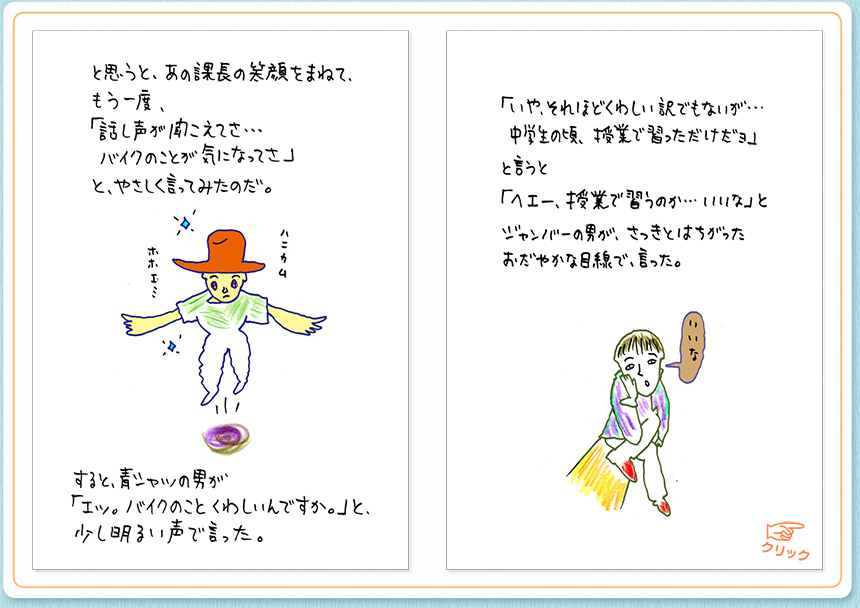 と思うと、あの課長の笑顔をまねて、
もう一度、
「話し声が聞こえてさ…
バイクのことが気になってさ」
と、やさしく言ってみたのだ。
ハニカム
ホホエミ
すると、青シャツの男が
「エッ。バイクのことくわしいんですか。」と、
少し明るい声で言った。
「いや、それほどくわしい訳でもないが…
中学生の頃、授業で習っただけだョ」
と言うと
「ヘエー、授業で習うのか…いいな」と
ジャンバーの男が、さっきとはちがった
おだやかな目線で、言った。
いいな
クリック